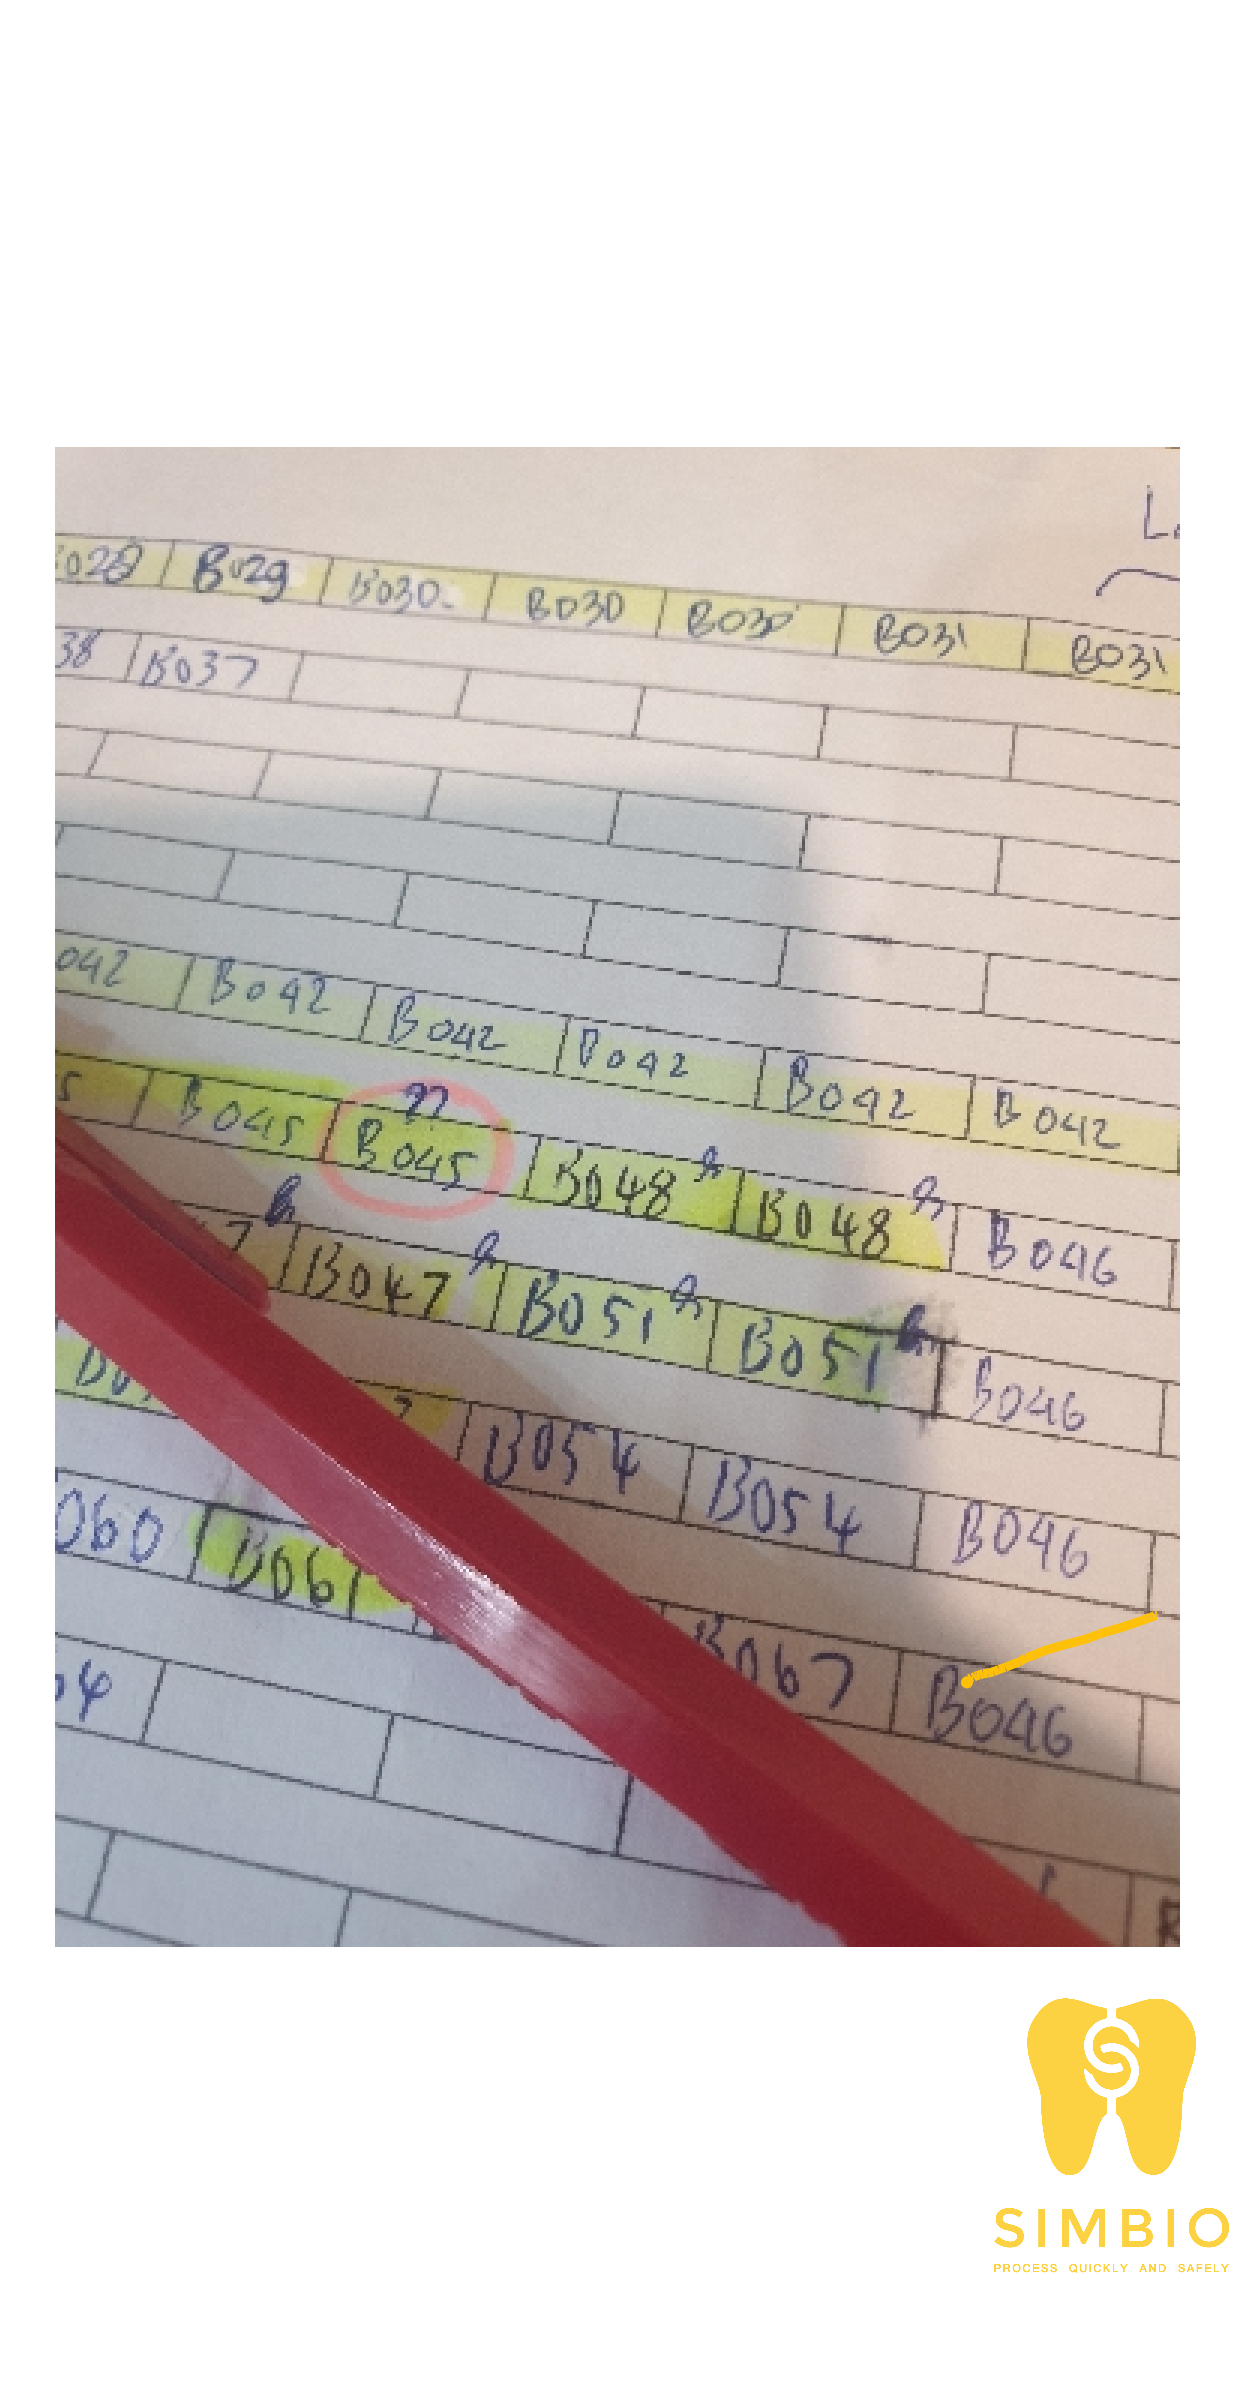 L
028 B029 B030 B030 B030 B031 B031
38 B037
042 B042 B042 B042 B042 B042
??
5 B045 B045 B048 B048 B046
7 B047 B051 B051 B046
B054 B054 B046
060 B061 B067 B046
64
SIMBIO
PROCESS QUICKLY AND SAFELY